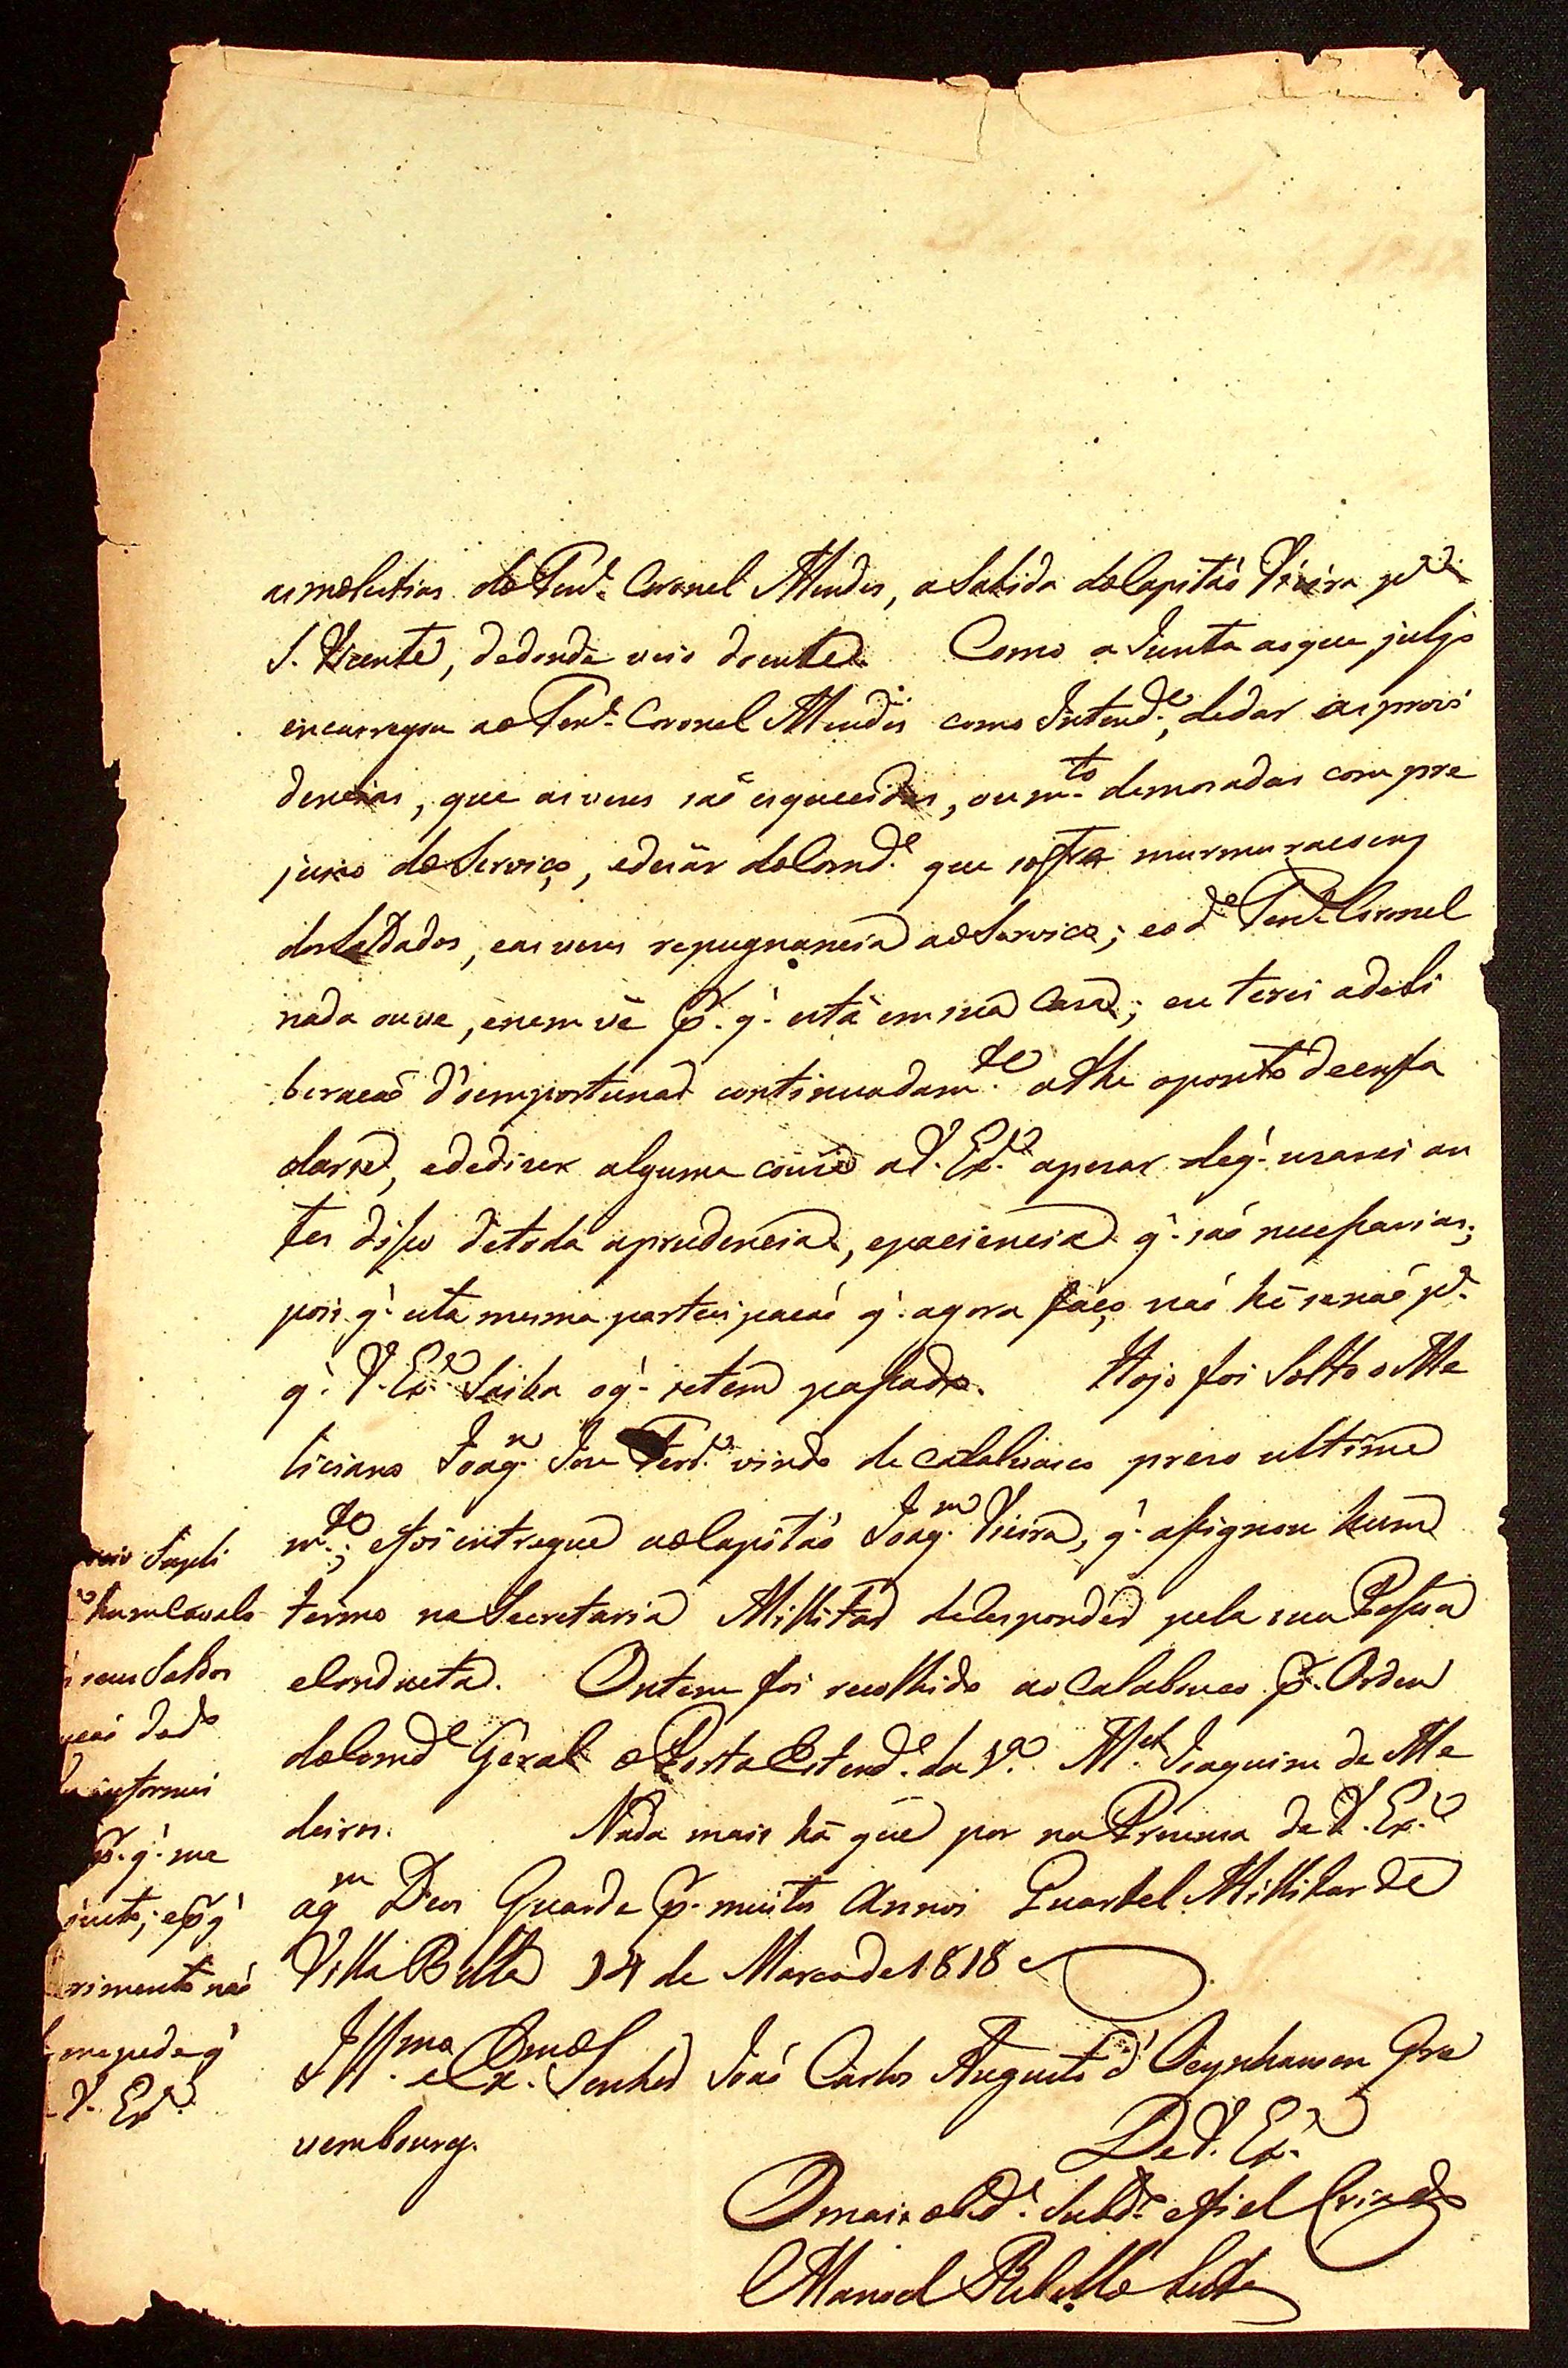 as molestias do Tene. Coronel Mendes, a Sahida do Capitaõ Vieira pa.
S. Vicente, dedonde veio doente. Como a Junta aoque julgo
encarregou ao Tene. Coronel Mendes como Intende., dedar as provi
dencias, que as vezes saõ esquecidas, ou mto. demoradas com pre
juizo do Servico, edeixar do Comde. que sofra murmuracoens
dos Soldados, e as vezes repugnancia ao Servico; e o de. Tene. Coronel
nada ouve, enem vê p. q. está em sua Casa; eu terei a deli
beracaõ d'oemportunar continuadamte. athe oponto de enfa
darse, e dedizer alguma couza a V. Exa. apezar de q. uzarei an
tes disso de toda aprudencia, epaciencia q. saõ necessarias;
pois q. esta mesma partecipacaõ q. agora faço, naõ hé senaõ pa.
q. V. Exa. Saiba o q. setem passado. Hoje foi Solto o Me
liciano Joaqm. Joze Ferra. vindo de calabouco prezo ultima
mte.; efoi entregue aoCapitaõ Joaqm. Vieira, q. assignou hum
termo na Secretaria Millitar deResponder pela sua Pessoa
eConducta. Ontem foi recolhido ao Calabouco p. Ordem
doComde. Geral oPorta Estende. da Va. Mel. Joaquim de Me
deiros. Nada mais há que por na Prezenca de V. Exa.
aqm Deos Guarde p. muitos Annos Quartel Millitar de
Villa Bella 14 de Marco de 1818
Illmo. e Exmo. Senhor Joaõ Carlos Augusto d'Oeynhausen Gra
vembourg.
De V. Exa.
O mais obde. Subdo. efiel Criado
Manoel Rebello Leite
Supli
hum Cavalo
seus Soldos
dado
informei
p. q. me
junto; e p q
rimento naõ
me pede q
V. Exa.